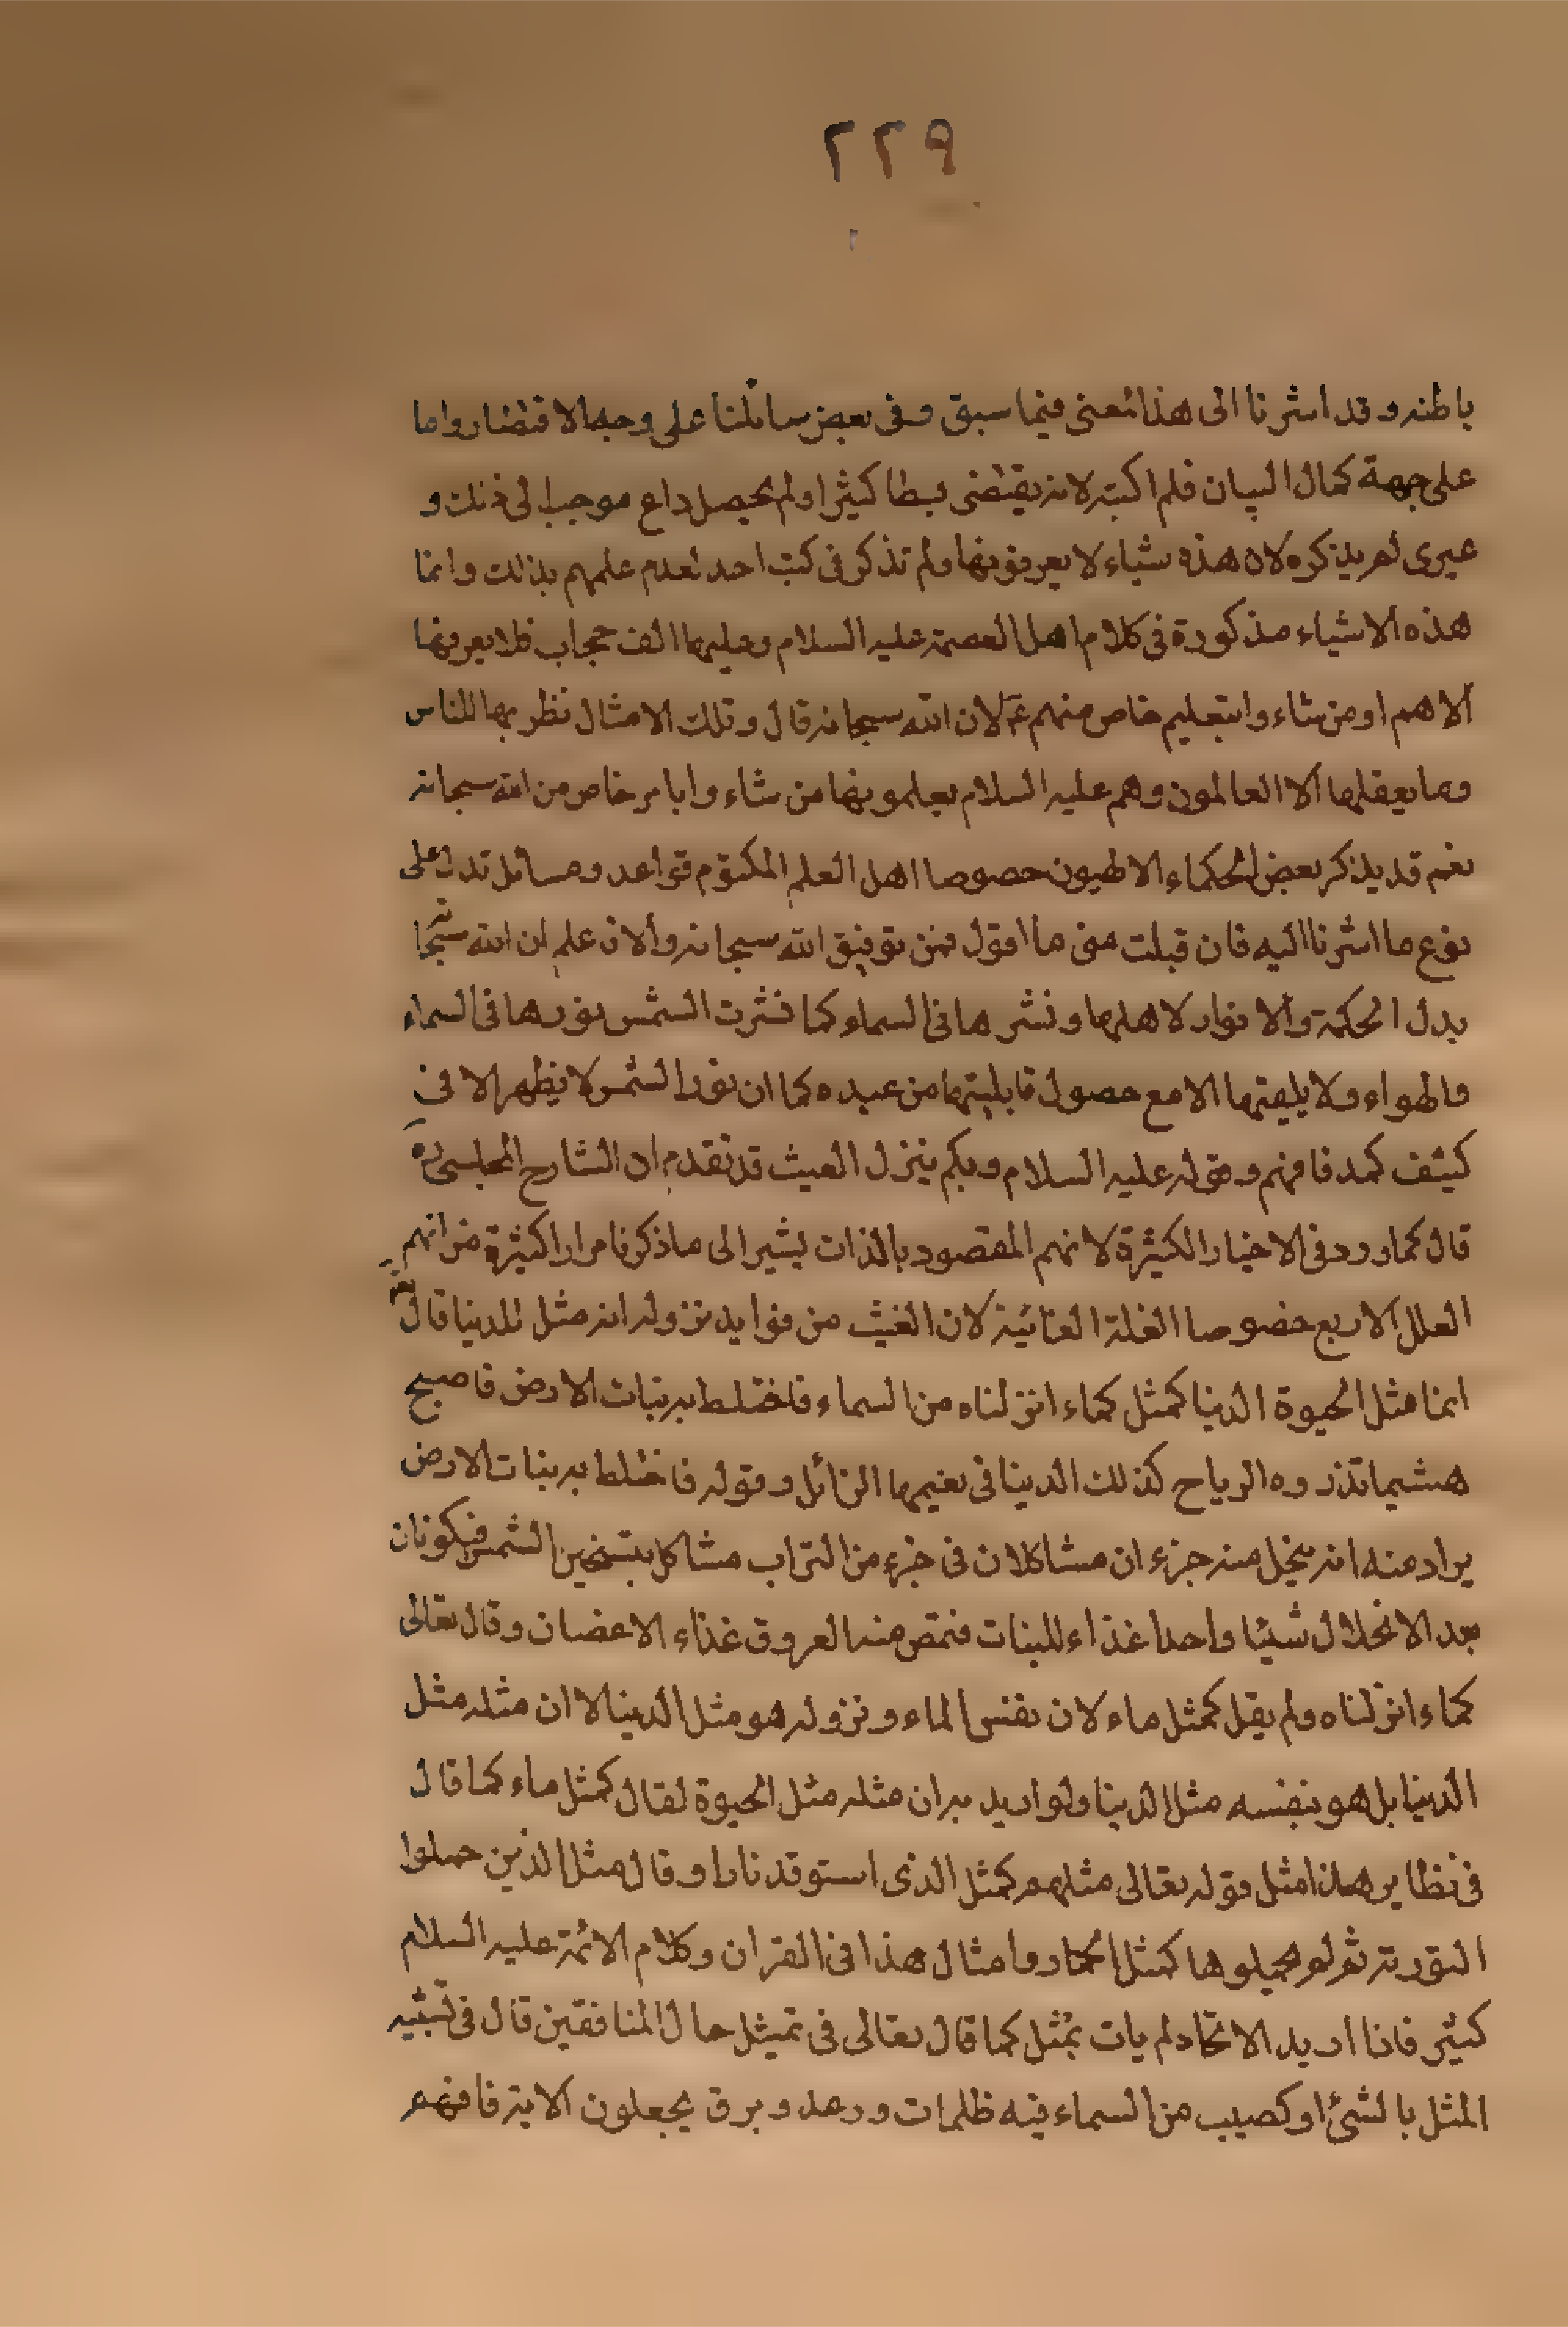 ٢٢٩
باطنه وقد اشرنا الى هذا المعنى فيما سبق وفى بعض رسائلنا على وجه الاقتصار واما
على جهة كمال البيان فلم اكتبه لانه يقتضى بسطا كثيرا ولم يحصل داع موجب الى ذلك و
غيرى لم يذكره لان هذه شياء لا يعرفونها ولم تذكر فى كتب احد لعدم علمهم بذلك وانما
هذه الاشياء مذكورة فى كلام اهل العصمة عليه السلام وعليها الف حجاب فلا يعرفها
الا هم او من شاء وا بتعليم خاص منهم ع لان الله سبحانه قال وتلك الامثال نظربها للناس
وما يعقلها الا العالمون وهم عليه السلام يعلمونها من شاء وا بامر خاص من الله سبحانه
نعم قد يذكر بعض الحكماء الالهيون خصوصا اهل العلم المكتوم قواعد ومسائل تدل على
نوع ما اشرنا اليه فان قبلت منى ما اقول فمن توفيق الله سبحانه والا فاعلم ان الله سبحانه
بذل الحكمة والانوار لاهلها ونشرها فى السماء كما نشرت الشمس نورها فى السماء
والهواء ولا يلقيها الا مع حصول قابليتها من عبيده كما ان نور الشمس لا يظهر الا فى
كثيف كمد فافهم وقوله عليه السلام وبكم ينزل الغيث قد تقدم ان الشارح المجلسى ره
قال كما ورد فى الاخبار الكثيرة لانهم المقصود بالذات يشير الى ما ذكرنا مرارا كثيرة من انهم
العلل الاربع خصوصا العلة الغائية لان الغيث من فوايد نزوله انه مثل للدنيا قال تعالى
انما مثل الحيوة الدنيا كمثل كماء انزلناه من السماء فاختلط به نبات الارض فاصبح
هشيما تذروه الرياح كذلك الدنيا فى نعيمها الزائل وقوله فاختلط به نبات الارض
يراد منه انه ينحل منه جزء ان مشاكلان فى جزء من التراب مشاكل بتسخين الشمس فيكونان
بعد الانحلال شيئا واحدا غذاء للنبات فتمتص منه العروق غذاء الاغصان وقال تعالى
كماء انزلناه ولم يقل كمثل ماء لان نفس الماء ونزوله هو مثل الدنيا لا ان مثله مثل
الدنيا بل هو بنفسه مثل الدنيا ولو اريد به ان مثله مثل الحيوة لقال كمثل ماء كما قال
فى نظاير هذا مثل قوله تعالى مثلهم كمثل الذى استوقد نارا وقال مثل الذين حملوا
التورية ثم لم يحملوها كمثل الحمار وامثال هذا فى القران وكلام الائمة عليه السلام
كثير فاذا اريد الاتحاد لم يات بمثل كما قال تعالى فى تمثيل حال المنافقين قال فى تشبيه
المثل بالشئ او كصيب من السماء فيه ظلمات ورعد وبرق يجعلون الاية فافهم